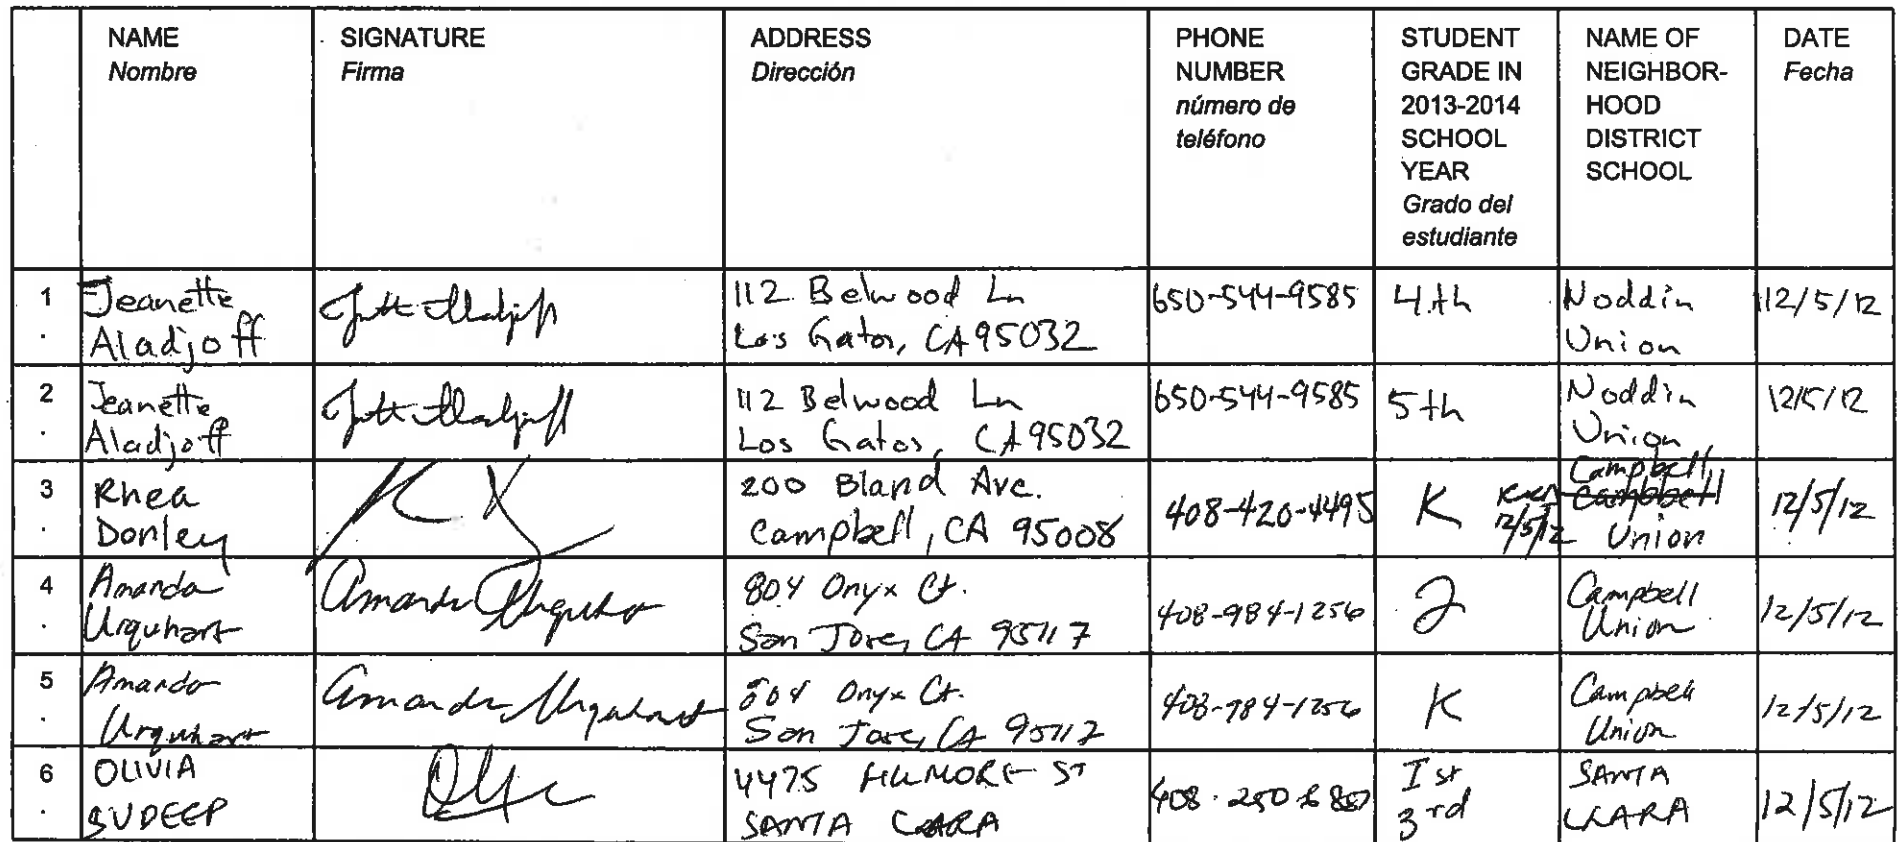 NAME
Nombre
SIGNATURE
Firma
ADDRESS
Dirección
PHONE
NUMBER
número de
teléfono
STUDENT
GRADE IN
2013-2014
SCHOOL
YEAR
Grado del
estudiante
NAME OF
NEIGHBOR-
HOOD
DISTRICT
SCHOOL
DATE
Fecha
1
.
Jeanette
Aladjoff
112 Belwood Ln
Los Gatos, CA 95032
650-544-9585
4th
Noddin
Union
12/5/12
2
.
Jeanette
Aladjoff
112 Belwood Ln
Los Gatos, CA 95032
650-544-9585
5th
Noddin
Union
12/5/12
3
.
Rhea
Dorley
200 Bland Ave.
Campbell, CA 95008
408-420-4495
K
12/5/12
Campbell
Campbell
Union
12/5/12
4
.
Amanda
Urquhart
Amanda Urquhart
804 Onyx Ct.
San Jose, CA 95117
408-984-1256
2
Campbell
Union
12/5/12
5
.
Amanda
Urquhart
Amanda Urquhart
804 Onyx Ct.
San Jose, CA 95117
408-984-1256
K
Campbell
Union
12/5/12
6
.
OLIVIA
SUDEEP
4475 FILLMORE ST
SANTA CLARA
408-250-
1st
3rd
SANTA
CLARA
12/5/12